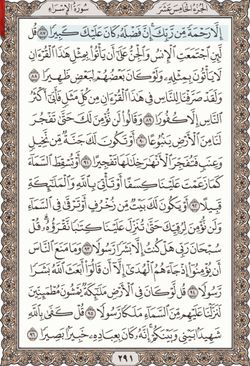 الجزء الخامس عشر سورة الإسراء
إِلَّا رَحْمَةً مِّن رَّبِّكَ إِنَّ فَضْلَهُۥ كَانَ عَلَيْكَ كَبِيرًا ٨٧ قُل
لَّئِنِ ٱجْتَمَعَتِ ٱلْإِنسُ وَٱلْجِنُّ عَلَىٰٓ أَن يَأْتُوا۟ بِمِثْلِ هَٰذَا ٱلْقُرْءَانِ
لَا يَأْتُونَ بِمِثْلِهِۦ وَلَوْ كَانَ بَعْضُهُمْ لِبَعْضٍ ظَهِيرًا ٨٨
وَلَقَدْ صَرَّفْنَا لِلنَّاسِ فِى هَٰذَا ٱلْقُرْءَانِ مِن كُلِّ مَثَلٍ فَأَبَىٰٓ أَكْثَرُ
ٱلنَّاسِ إِلَّا كُفُورًا ٨٩ وَقَالُوا۟ لَن نُّؤْمِنَ لَكَ حَتَّىٰ تَفْجُرَ
لَنَا مِنَ ٱلْأَرْضِ يَنۢبُوعًا ٩٠ أَوْ تَكُونَ لَكَ جَنَّةٌ مِّن نَّخِيلٍ
وَعِنَبٍ فَتُفَجِّرَ ٱلْأَنْهَٰرَ خِلَٰلَهَا تَفْجِيرًا ٩١ أَوْ تُسْقِطَ ٱلسَّمَآءَ
كَمَا زَعَمْتَ عَلَيْنَا كِسَفًا أَوْ تَأْتِىَ بِٱللَّهِ وَٱلْمَلَٰٓئِكَةِ
قَبِيلًا ٩٢ أَوْ يَكُونَ لَكَ بَيْتٌ مِّن زُخْرُفٍ أَوْ تَرْقَىٰ فِى ٱلسَّمَآءِ
وَلَن نُّؤْمِنَ لِرُقِيِّكَ حَتَّىٰ تُنَزِّلَ عَلَيْنَا كِتَٰبًا نَّقْرَؤُهُۥ قُلْ
سُبْحَانَ رَبِّى هَلْ كُنتُ إِلَّا بَشَرًا رَّسُولًا ٩٣ وَمَا مَنَعَ ٱلنَّاسَ
أَن يُؤْمِنُوٓا۟ إِذْ جَآءَهُمُ ٱلْهُدَىٰٓ إِلَّآ أَن قَالُوٓا۟ أَبَعَثَ ٱللَّهُ بَشَرًا
رَّسُولًا ٩٤ قُل لَّوْ كَانَ فِى ٱلْأَرْضِ مَلَٰٓئِكَةٌ يَمْشُونَ مُطْمَئِنِّينَ
لَنَزَّلْنَا عَلَيْهِم مِّنَ ٱلسَّمَآءِ مَلَكًا رَّسُولًا ٩٥ قُلْ كَفَىٰ بِٱللَّهِ
شَهِيدًۢا بَيْنِى وَبَيْنَكُمْ إِنَّهُۥ كَانَ بِعِبَادِهِۦ خَبِيرًۢا بَصِيرًا ٩٦
٢٩١